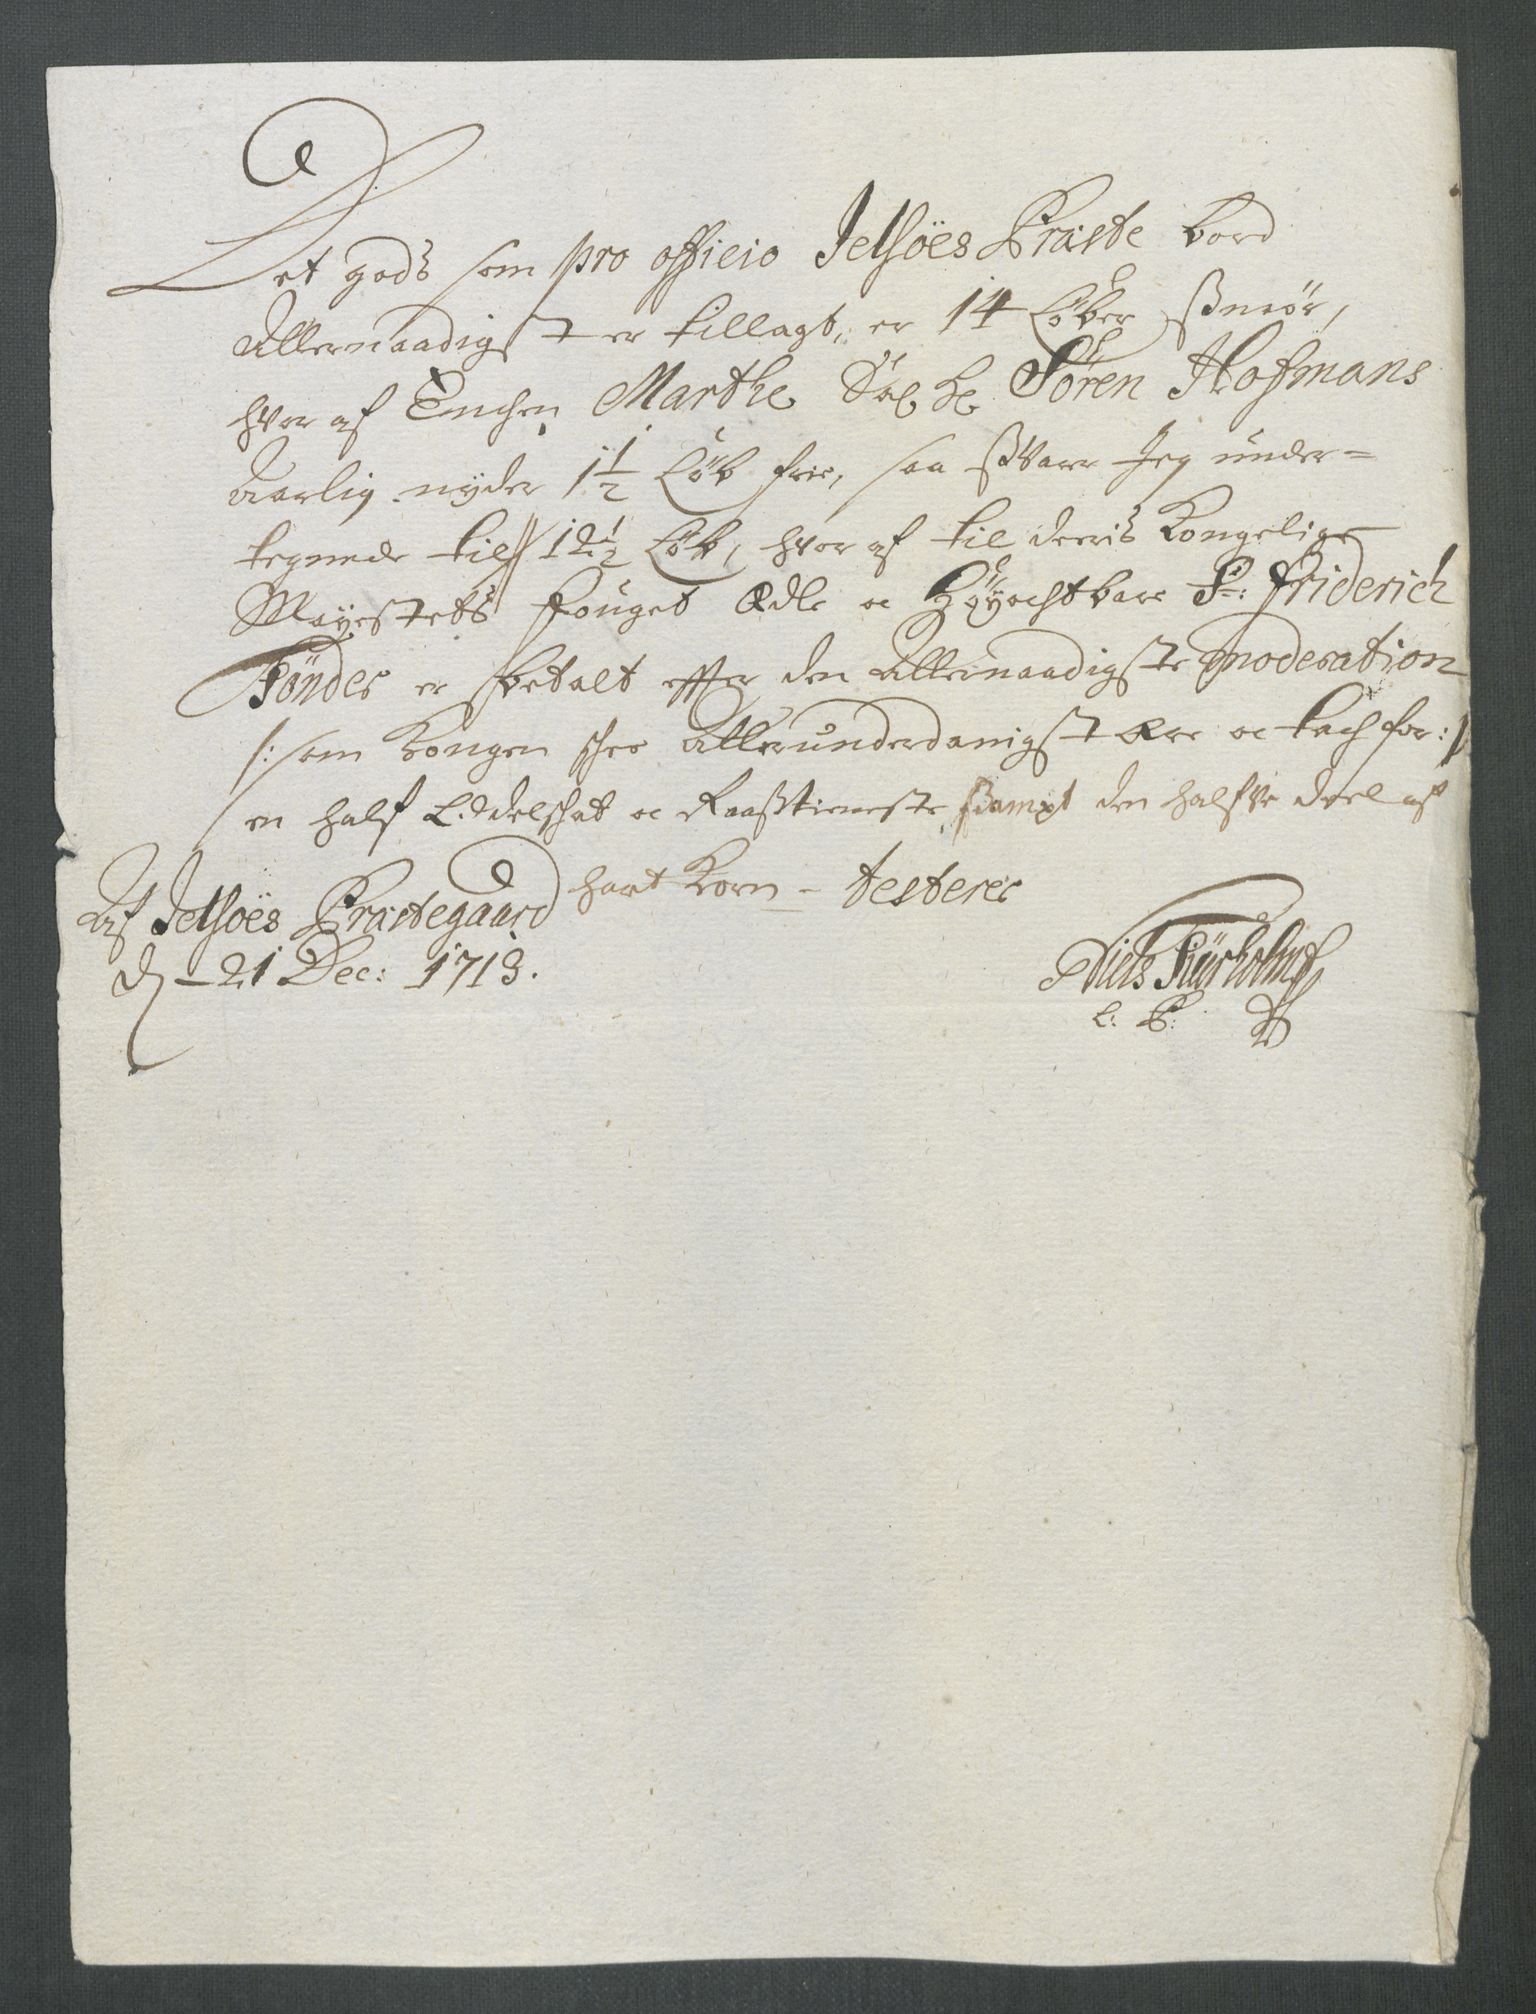 Det gods som pro officio Jelsöes Præste bord
Allernaadigst er tillagt, er 14 Löber Smör,
hvor af Enchen Marthe Sal. Hr. Sören Hofmans
Aarlig nyder 1 1/2 Löb frie, saa Svarer Jeg under-
tegnede till 12 1/2 Löb, hvor af til deris Kongelige
Mayestets fouget Ædle oc Höyachtbare Sr: Friderich
Fönder er betalt effter den Allernaadigste moderation
/: som Kongen schee Allerunderdanigst Ære oc tach for: /
en half Leddelschat oc Raastieneste, Sampt den halfve deel af
hart Korn - testerer
Af Jelsöes Præstegaard
d. 21 Dec: 1713.
Niels